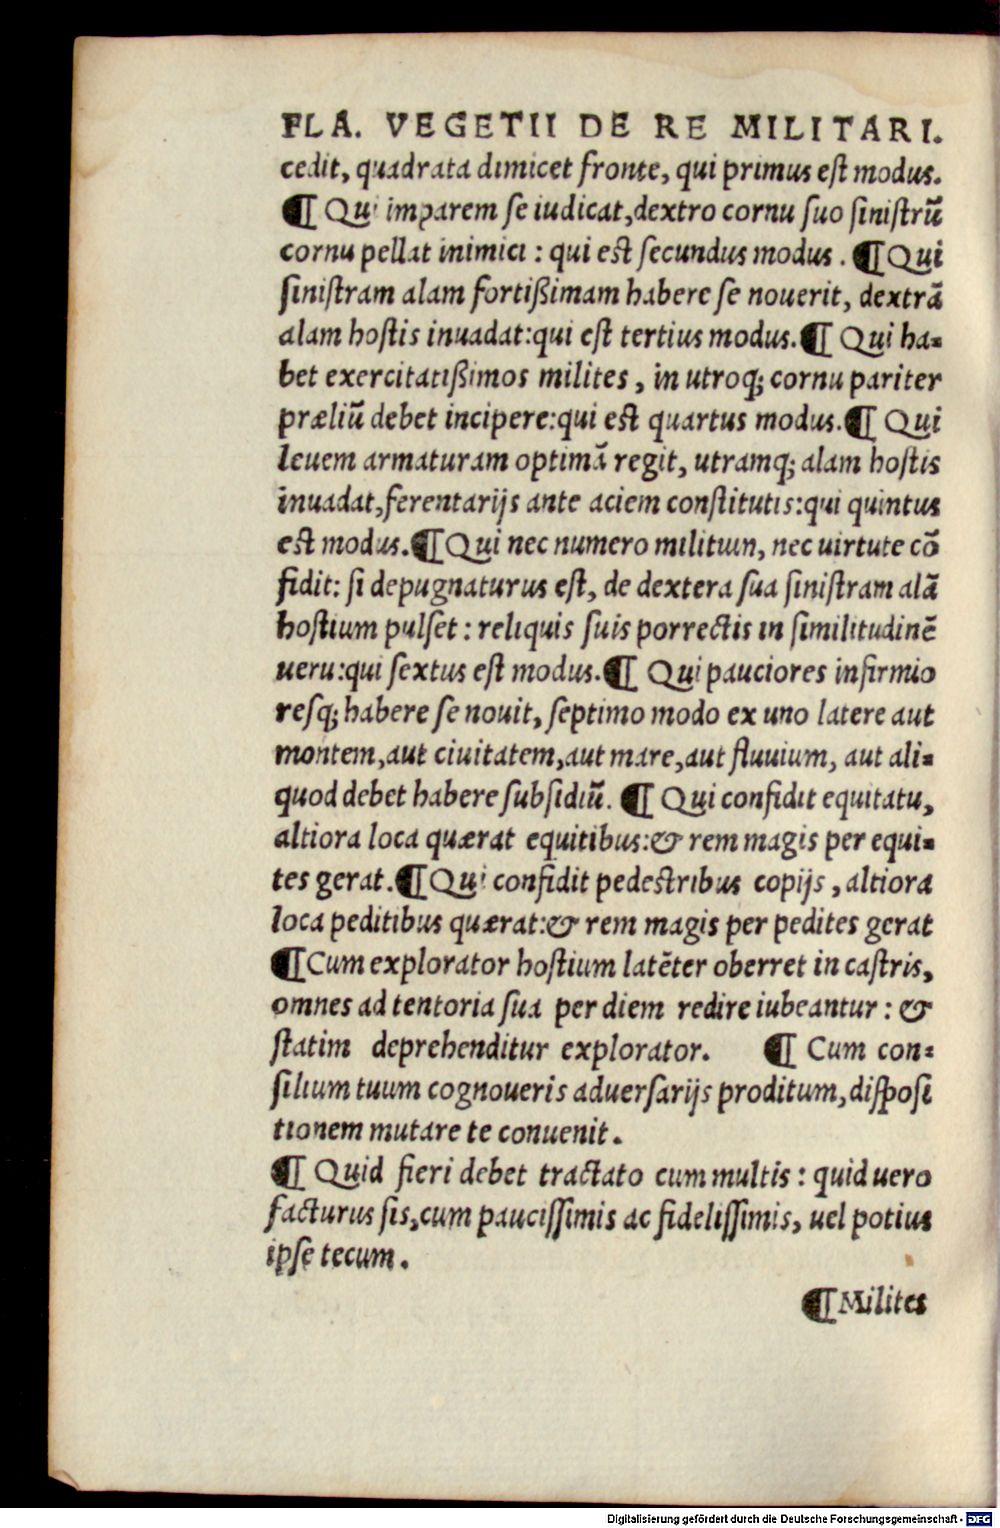 FLA. VEGETII DE RE MILITARI.
cedit, quadrata dimicet fronte, qui primus eſt modus.
¶ Qui imparem ſe iudicat,dextro cornu ſuo ſiniſtrũ
cornu pellat inimici : qui eſt ſecundus modus . ¶ Qui
ſiniſtram alam fortißimam habere ſe nouerit, dextrã
alam hoſtis inuadat:qui eſt tertius modus.¶ Qui ha-
bet exercitatißimos milites , in utroq; cornu pariter
præliũ debet incipere:qui eſt quartus modus.¶ Qui
leuem armaturam optimã regit, utramq; alam hoſtis
inuadat,ferentarijs ante aciem conſtitutis:qui quintus
eſt modus.¶ Qui nec numero militum, nec uirtute cõ
fidit: ſi depugnaturus eſt, de dextera ſua ſiniſtram alã
hoſtium pulſet : reliquis ſuis porrectis in ſimilitudinẽ
ueru:qui ſextus eſt modus.¶ Qui pauciores infirmio
reſq; habere ſe nouit, ſeptimo modo ex uno latere aut
montem,aut ciuitatem,aut mare,aut fluuium, aut ali-
quod debet habere ſubſidiũ. ¶ Qui confidit equitatu,
altiora loca quærat equitibus:& rem magis per equi-
tes gerat.¶ Qui confidit pedeſtribus copijs , altiora
loca peditibus quærat:& rem magis per pedites gerat
¶ Cum explorator hoſtium latẽter oberret in caſtris,
omnes ad tentoria ſua per diem redire iubeantur : &
ſtatim deprehenditur explorator. ¶ Cum con-
ſilium tuum cognoueris aduerſarijs proditum, diſpoſi
tionem mutare te conuenit .
¶ Quid fieri debet tractato cum multis : quid uero
facturus ſis,cum pauciſſimis ac fideliſſimis, uel potius
ipſe tecum .
¶ Milites
Digitalisierung gefördert durch die Deutsche Forschungsgemeinschaft - DFG